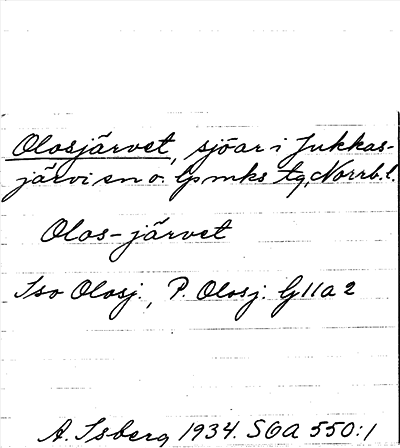 Olosjärvet, sjöar i Jukkas-
järvi sn o. lpmks tg, Norrb. l.
Olos-järvet
Iso Olosj., P. Olosj. G11a2
A. Isberg 1934. SOA 550:1